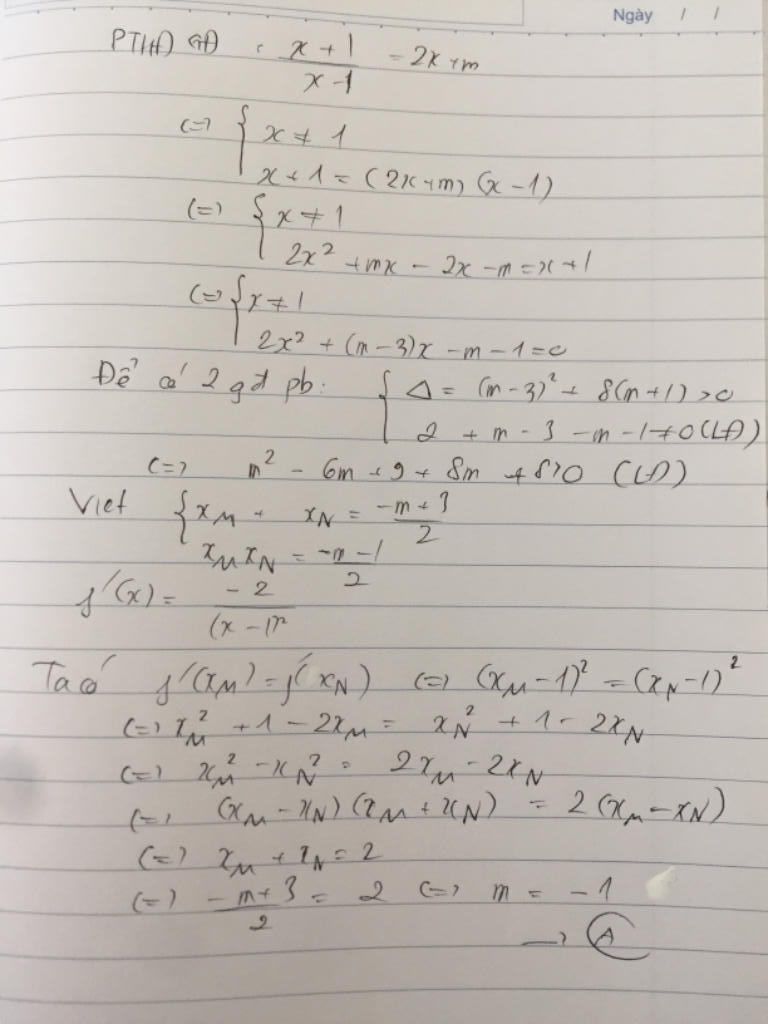 Ngày / /
PTHĐGĐ : \frac{x+1}{x-1} = 2x+m
<=> { x ≠ 1
x+1 = (2x+m)(x-1)
(=) { x ≠ 1
2x² + mx - 2x - m = x+1
(=) { x ≠ 1
2x² + (m-3)x - m - 1 = 0
Để có 2 gđ pb: { Δ = (m-3)² + 8(m+1) > 0
2 + m - 3 - m - 1 ≠ 0 (LĐ)
(=) m² - 6m + 9 + 8m + 8 > 0 (LĐ)
Viet { x_M + x_N = \frac{-m+3}{2}
x_M x_N = \frac{-m-1}{2}
f'(x) = \frac{-2}{(x-1)²}
Ta có f'(x_M) = f'(x_N) (=) (x_M - 1)² = (x_N - 1)²
(=) x_M² + 1 - 2x_M = x_N² + 1 - 2x_N
(=) x_M² - x_N² = 2x_M - 2x_N
(=) (x_M - x_N)(x_M + x_N) = 2(x_M - x_N)
(=) x_M + x_N = 2
(=) \frac{-m+3}{2} = 2 (=) m = -1
→ A